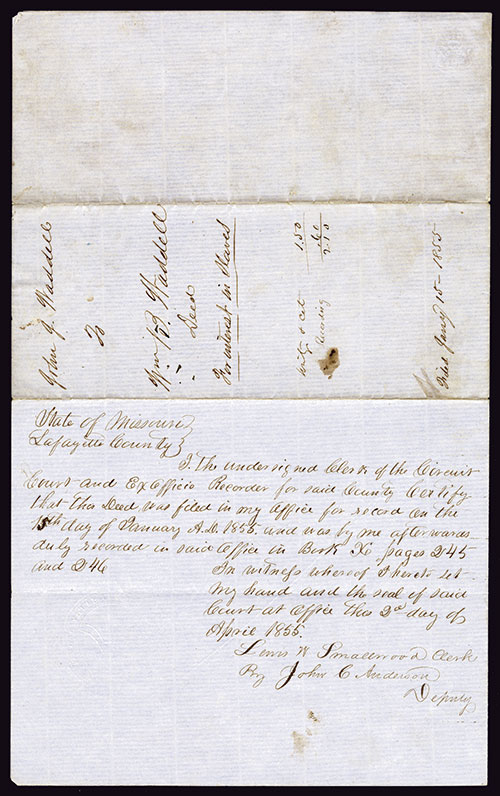 John J. Waddell
To
Wm B. Waddell
Deed
For interest in Slaves
& cet 1.50
Recording .60
2.10
Filed Jany 15 - 1855
State of Missouri }
Lafayette County }
I. The undersigned Clerk of the Circuit
Court and Ex Officio Recorder for said County Certify
that This Deed was filed in my Office for record on the
15th day of January A.D. 1855. and was by me afterwards
duly recorded in said Office in Book pages 245
and 246
In witness whereof I hereto set
my hand and the seal of said
Court at Office this 2d day of
April 1855.
Lewis W Smallwood Clerk
By John C Anderson
Deputy